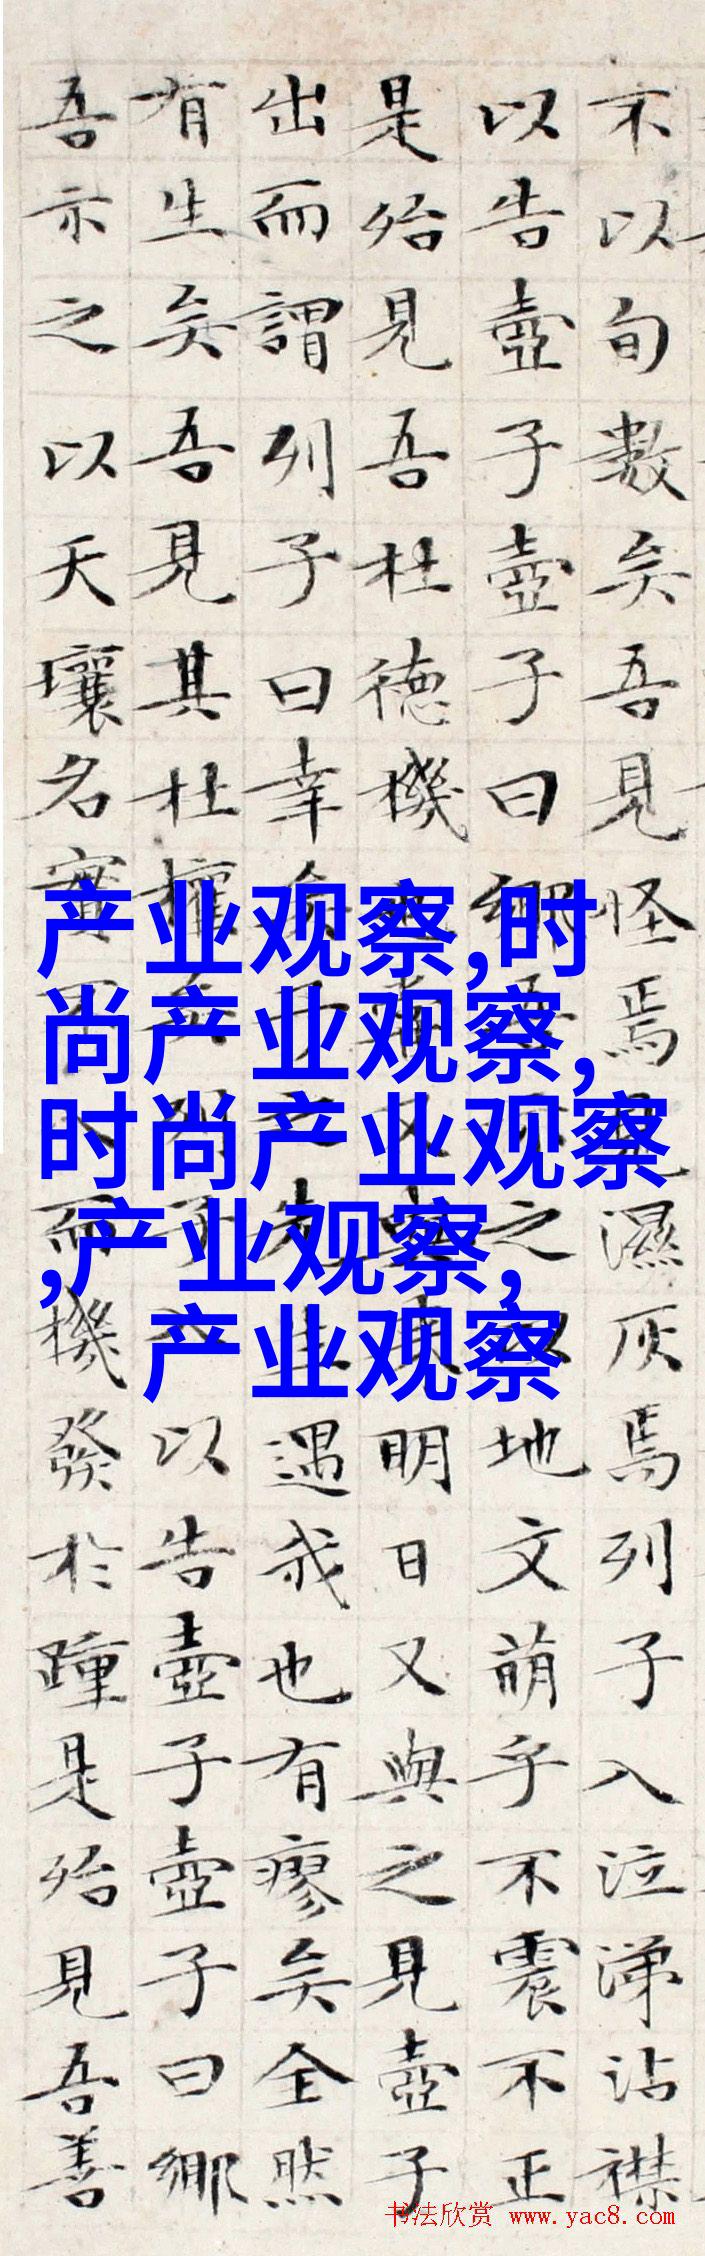 不以旬數矣吾見怪焉見濕灰焉列子入泣涕沾襟
以告壺子壺子曰鄉吾示之以地文萌乎不震不正
是殆見吾杜德機也嘗又與來明日又與之見壺子
出而謂列子曰幸矣子之先生遇我也有瘳矣全然
有生矣吾見其杜權矣列子入以告壺子壺子曰鄉
吾示之以天壤名實不入而機發於踵是殆見吾善
产业观察,时
尚产业观察,
时尚产业观察
,产业观察,
产业观察
书法欣赏 www.yac8.com